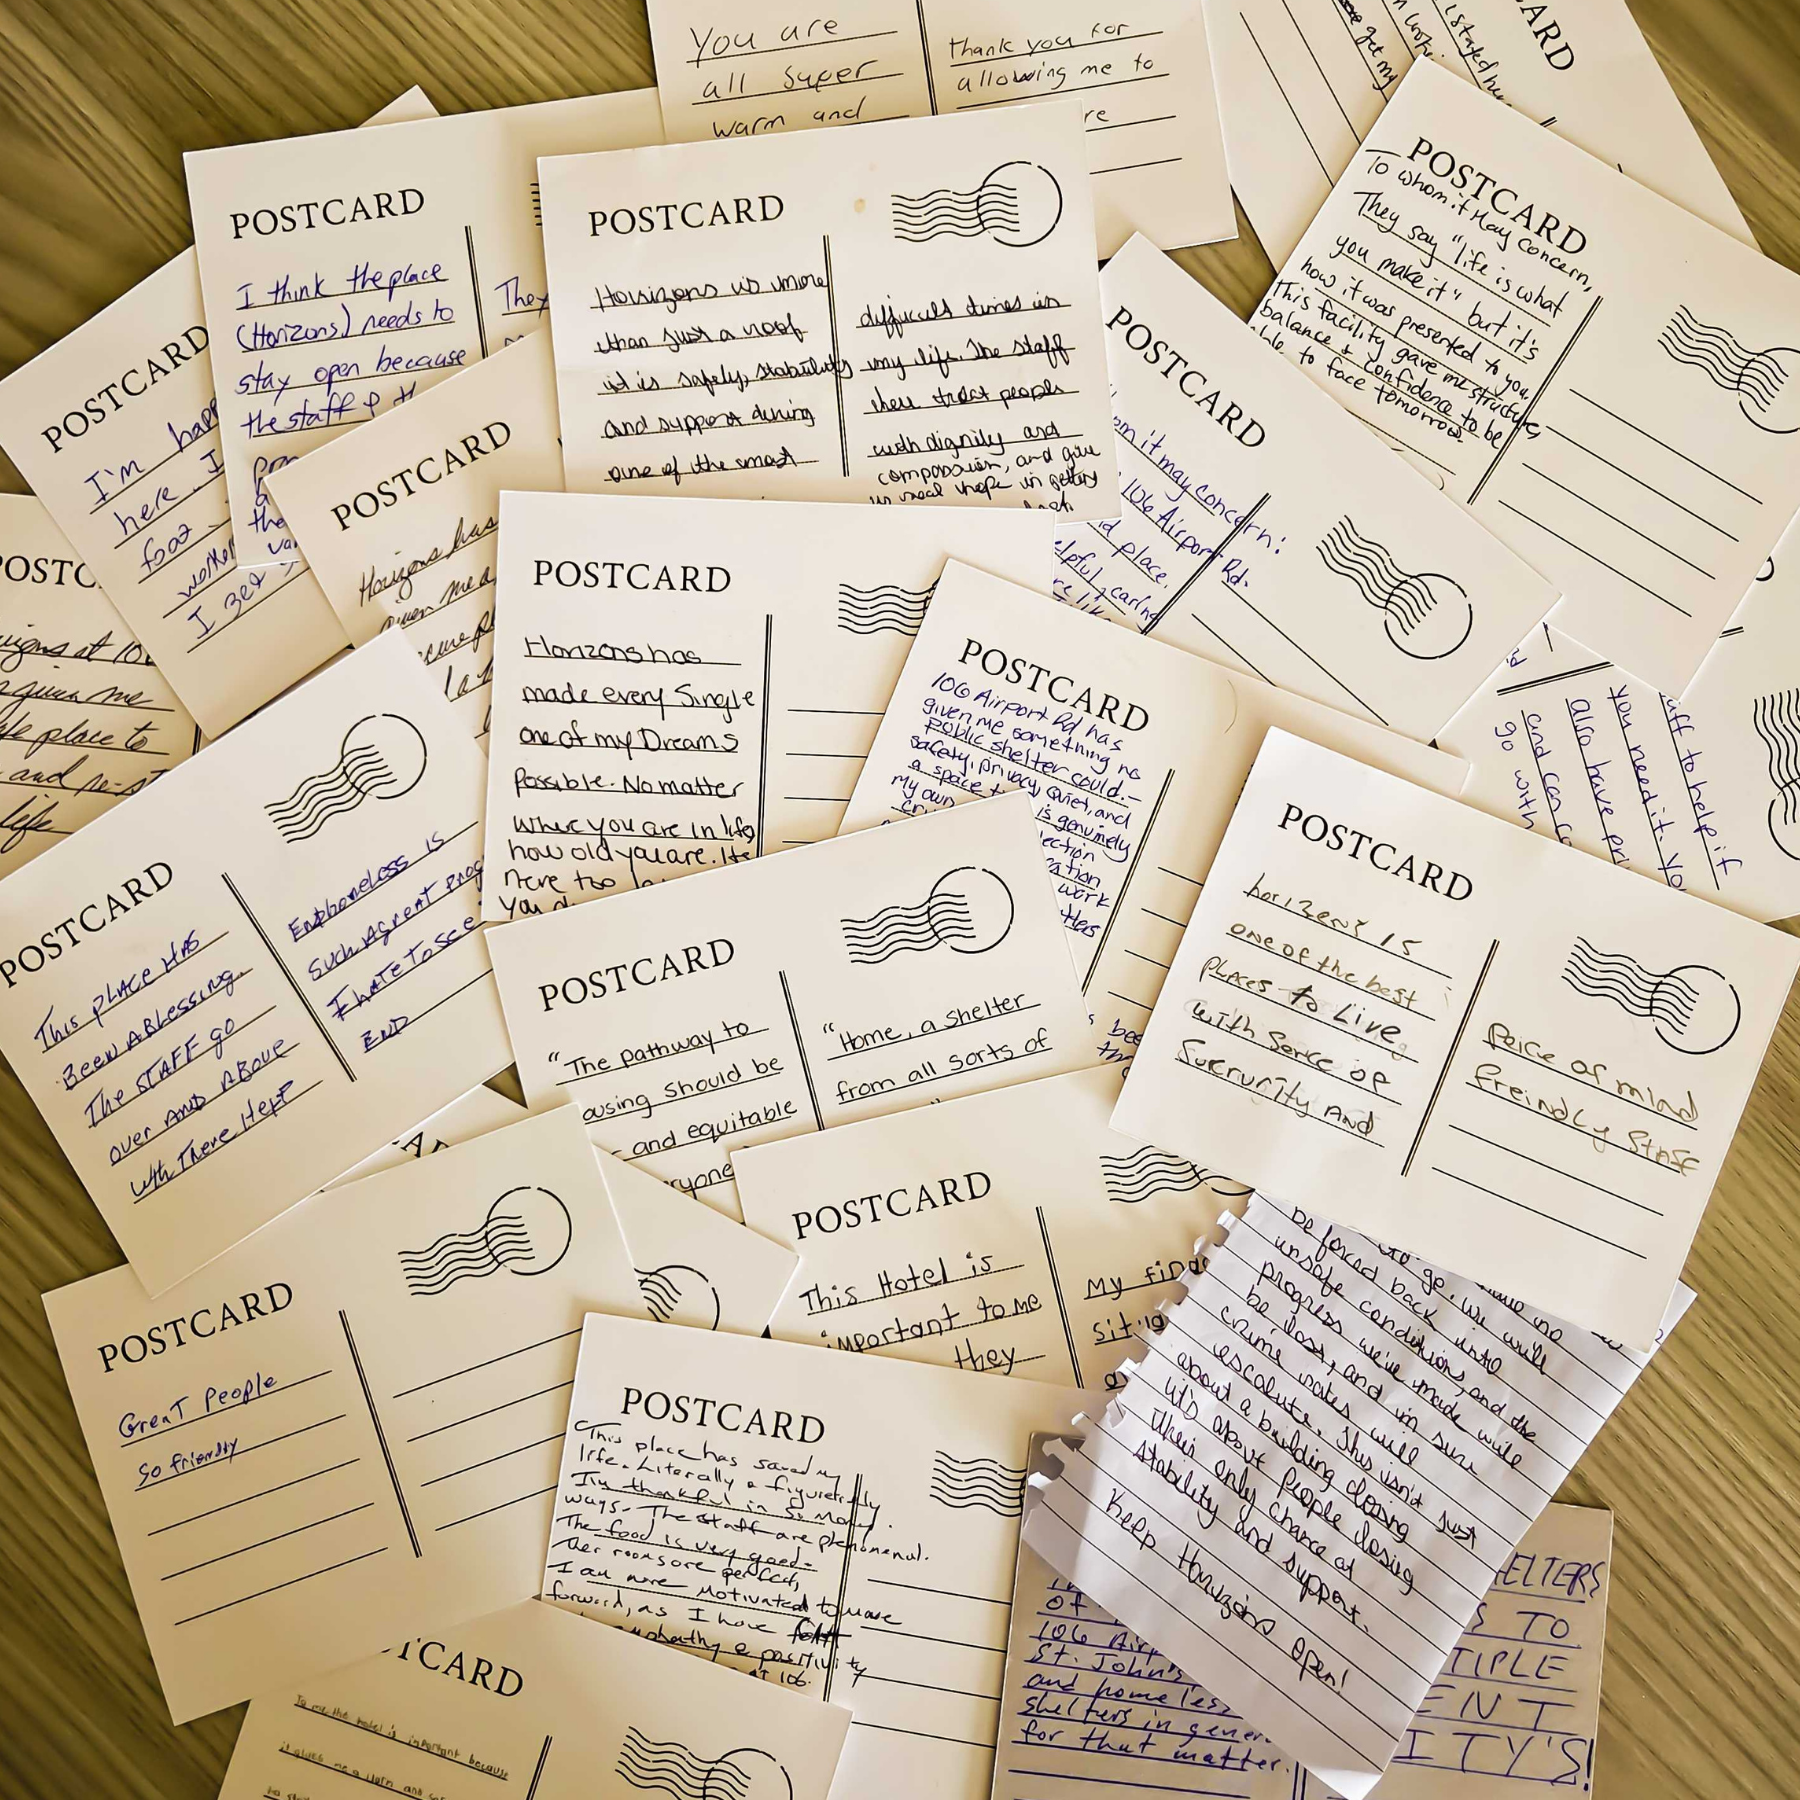 You are
all super
warm and
thank you for
allowing me to
re
get my
I stated
CARD
POSTCARD
I think the place
(Horizons) needs to
stay open because
the staff &
They
POSTCARD
Horizons is more
than just a roof
it is safety, stability
and support during
one of the most
difficult times in
my life. The staff
here treat people
with dignity and
compassion, and give
us real hope in getting
POSTCARD
To whom it May concern,
They say "life is what
you make it" but it's
how it was presented to you.
This facility gave me structure,
balance & confidence to be
able to face tomorrow.
POSTCARD
I'm happ
here I
food
worker
I get
POSTCARD
Horizons has
given me a
secure pl
POSTCARD
om it may concern:
106 Airport Rd.
nd place.
elpful, caring
POSTC
rizons at 10
given me
fe place to
and re-st
life
POSTCARD
Horizons has
made every Single
one of my Dreams
Possible. No matter
where you are in life,
how old you are. Its
never too la
you d
POSTCARD
106 Airport Rd has
given me something no
public shelter could. –
safety, privacy, Quiet, and
a space t
is genuinely
my own
ection
ation
work
thers
bee
uff to help if
you need it. Yo
also have pri
and can co
go with
POSTCARD
This place HAS
BEEN A BLessing
The STAFF go
over AND ABove
with There Help
Endhomeless is
such A great prog
I HATE To see
END
POSTCARD
"The pathway to
ousing should be
and equitable
ryone
"Home, a shelter
from all sorts of
"
POSTCARD
horizens is
one of the best
places to Live
with Sence of
Sucrunity And
Peice of mind
freindly Stafe
POSTCARD
This Hotel is
important to me
they
My fina
situa
POSTCARD
Great People
so friendly
POSTCARD
"This place has saved my
life. Literally & figuretivly
I'm thankful in so many
ways. The staff are phenomenal.
The food is very good.
Ther rooms are perfect,
I am more motivated to move
forward, as I have
empathy & positivity
AT 106.
to go. We will
be forced back into
unsafe conditions, and the
progress we've made will
be lost, and in turn
crime rates will
escalate. This isn't just
about a building closing
it's about people losing
their only chance at
stability and support.
Keep Horizons Open!
TCARD
To me the hotel is important because
it gives me a warm and saf
of
106 Airp
St. John's
and homeless
shelters in gener
for that matter.
ELTERS
S TO
TIPLE
ENT
ITY'S!